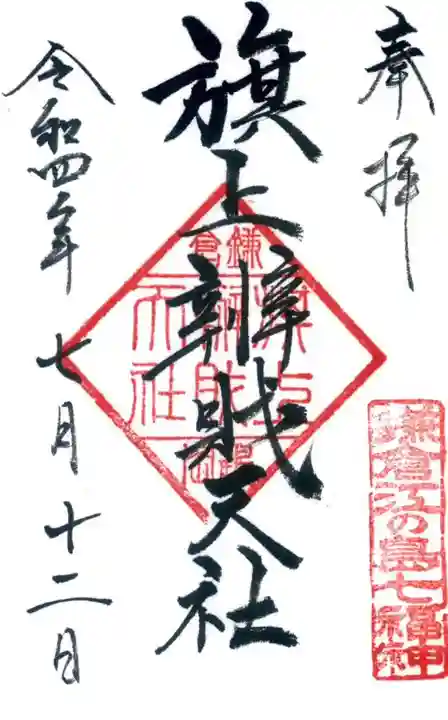 奉拝
鎌倉江の島七福神
旗上辨財天社
鎌倉
旗上
辨財
天社
令和四年七月十二日